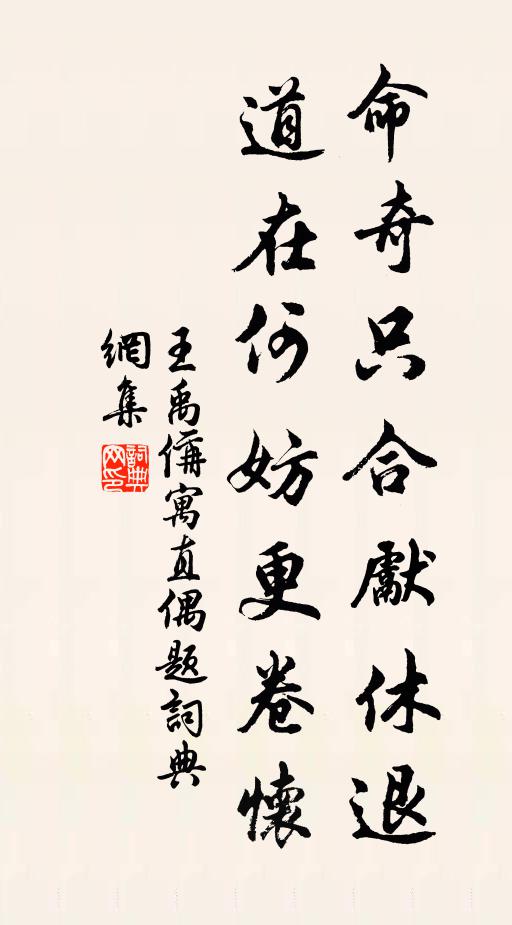 命奇只合獻休退
道在何妨更卷懷
王禹偁寓直偶題詞典
網集
詞典
网印